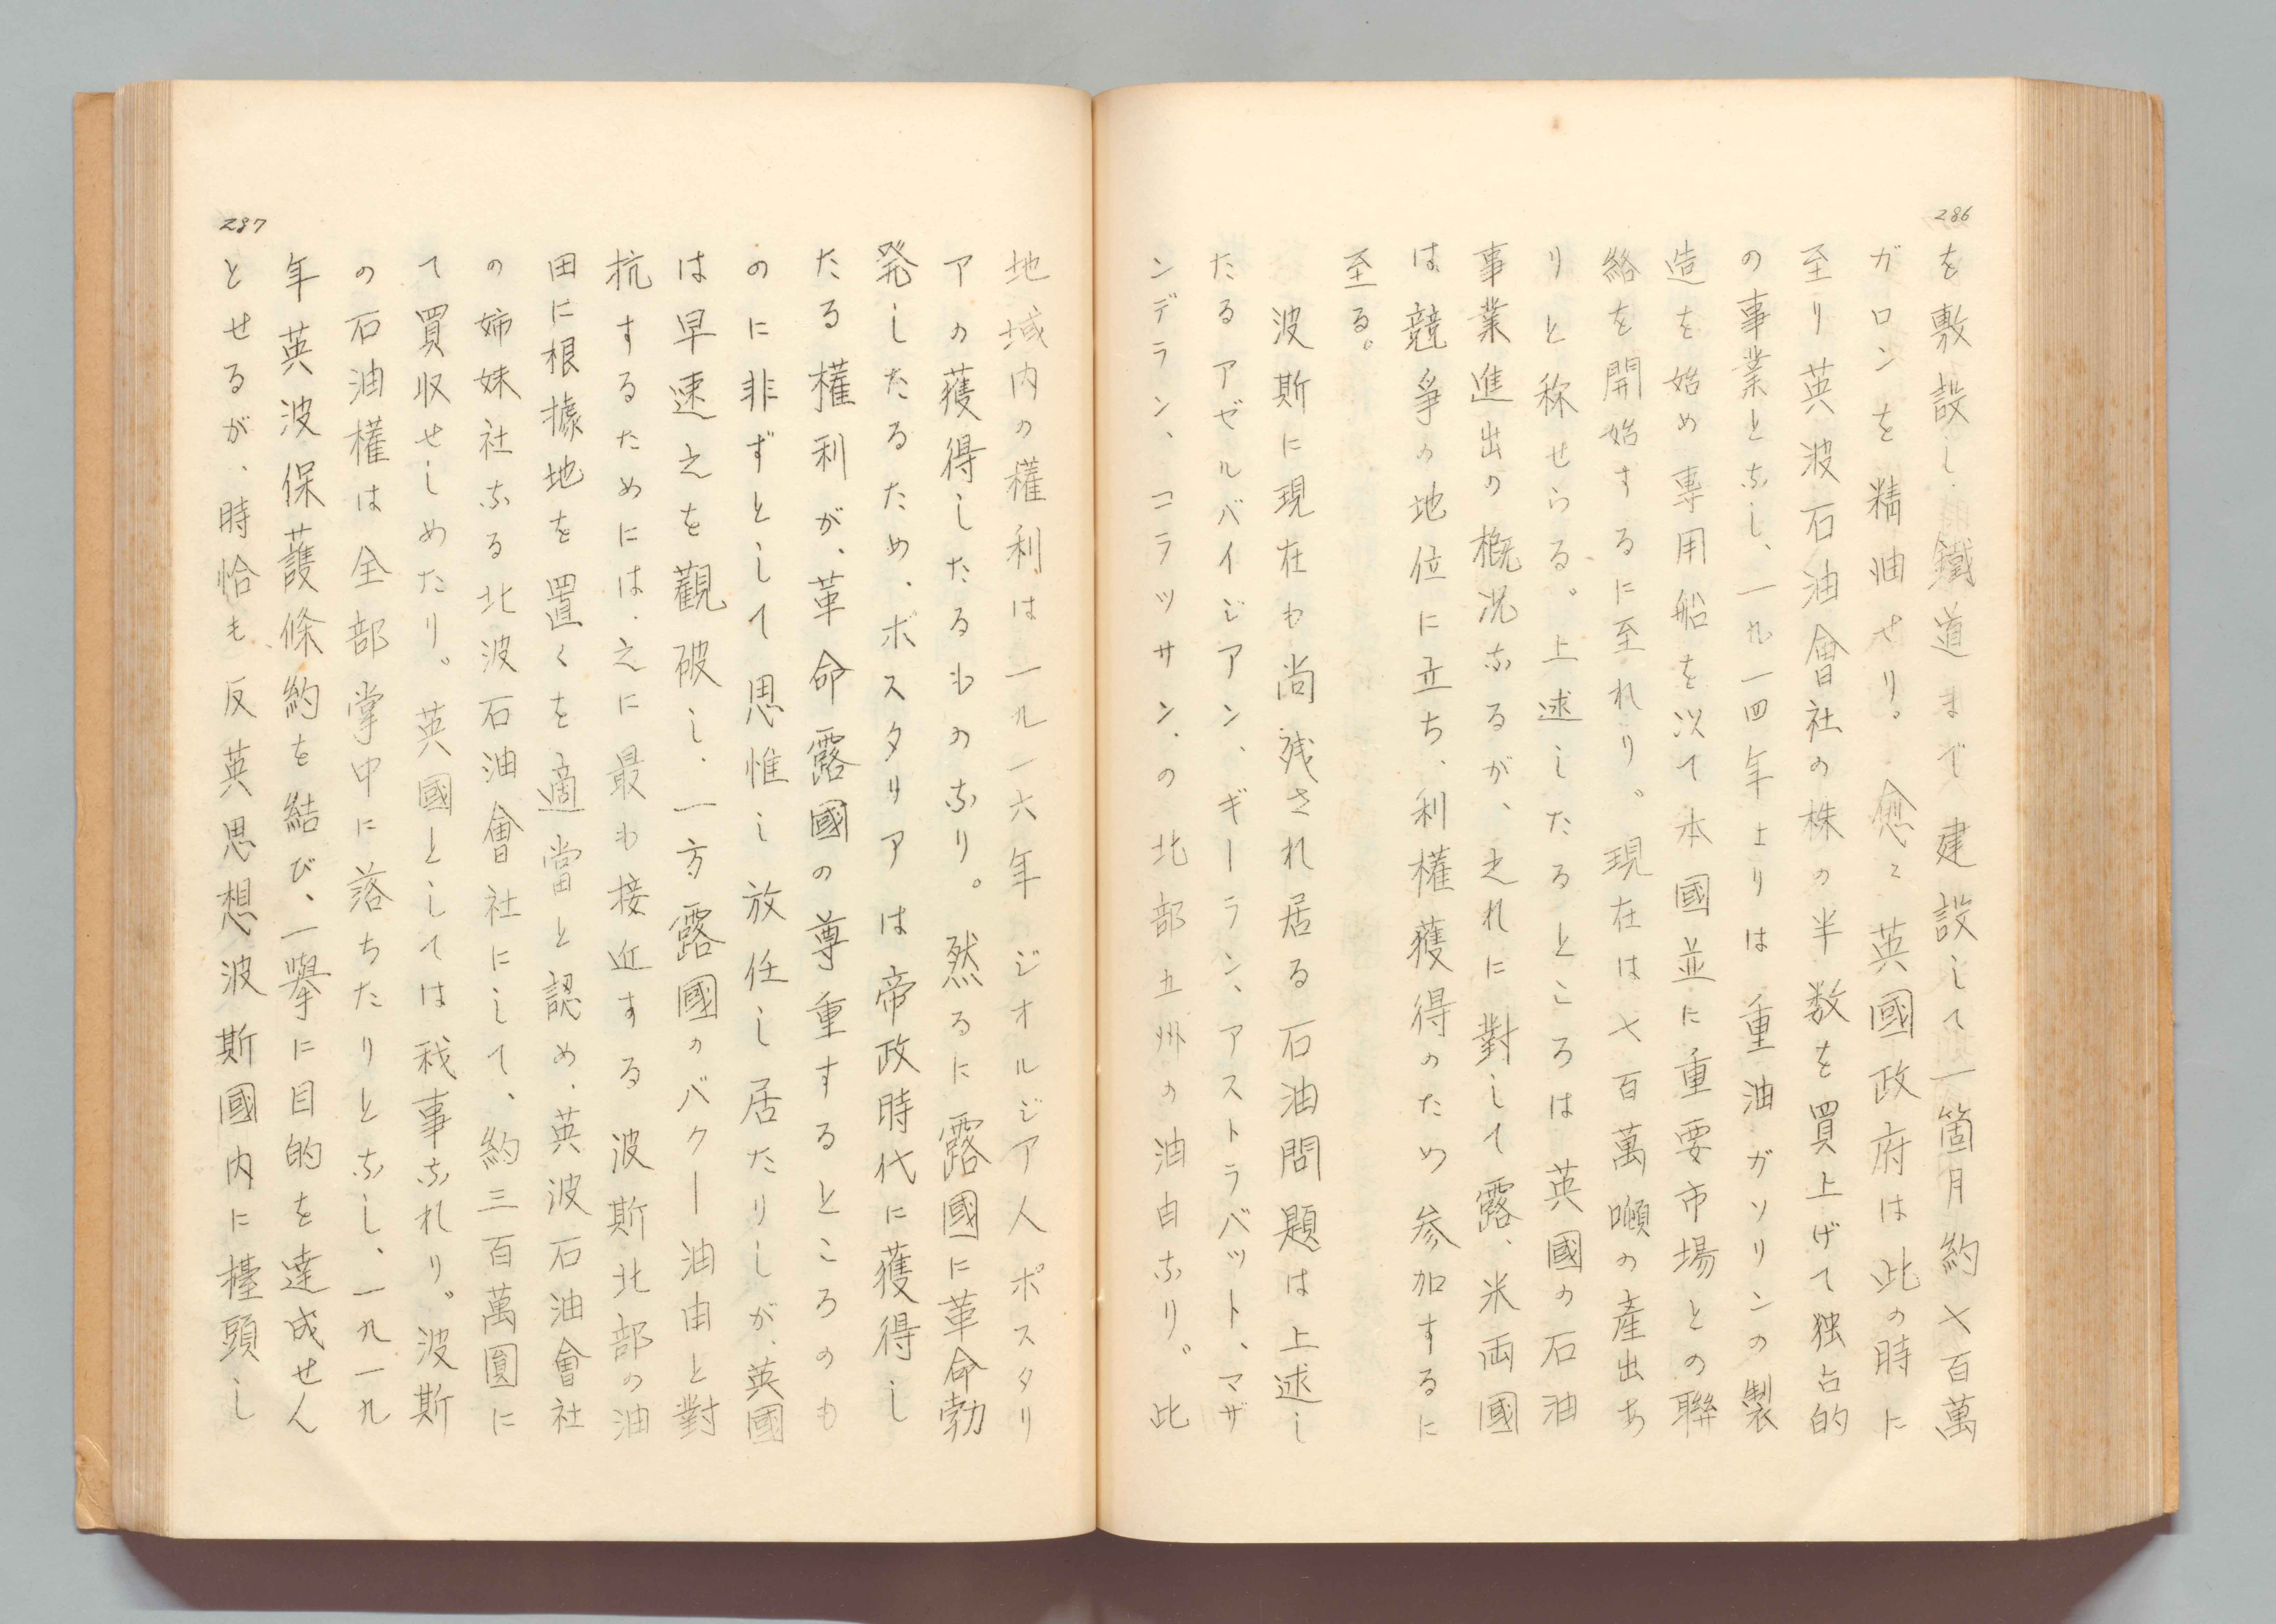 286
を敷設し、鐵道まで建設して一箇月約七百萬
ガロンを精油せり。愈々英國政府は此の時に
至り英波石油會社の株の半数を買上げて独占的
の事業となし、一九一四年よりは重油ガソリンの製
造を始め専用船を以て本國並に重要市場との聯
絡を開始するに至れり。現在は七百萬噸の產出あ
りと称せらる。上述したるところは英國の石油
事業進出の概況なるが、之れに對して露、米両國
は競爭の地位に立ち、利權獲得のため参加するに
至る。
波斯に現在も尚残され居る石油問題は上述し
たるアゼルバイジアン、ギーラン、アストラバット、マザ
ンデラン、コラッサン、の北部五州の油田なり。此
地域内の權利は一九一六年ジオルジア人ポスタリ
アの獲得したるものなり。然るに露國に革命勃
発したるため、ボスタリアは帝政時代に獲得し
たる權利が、革命露國の尊重するところのも
のに非ずとして思惟し放任し居たりしが、英國
は早速之を觀破し、一方露國のバクー油田と對
抗するためには、之に最も接近する波斯北部の油
田に根據地を置くを適當と認め、英波石油會社
の姉妹社なる北波石油會社にして、約三百萬圓に
て買収せしめたり。英國としては我事なれり。波斯
の石油權は全部掌中に落ちたりとなし、一九一九
年英波保護條約を結び、一擧に目的を達成せん
とせるが、時恰も反英思想波斯國内に擡頭し
287